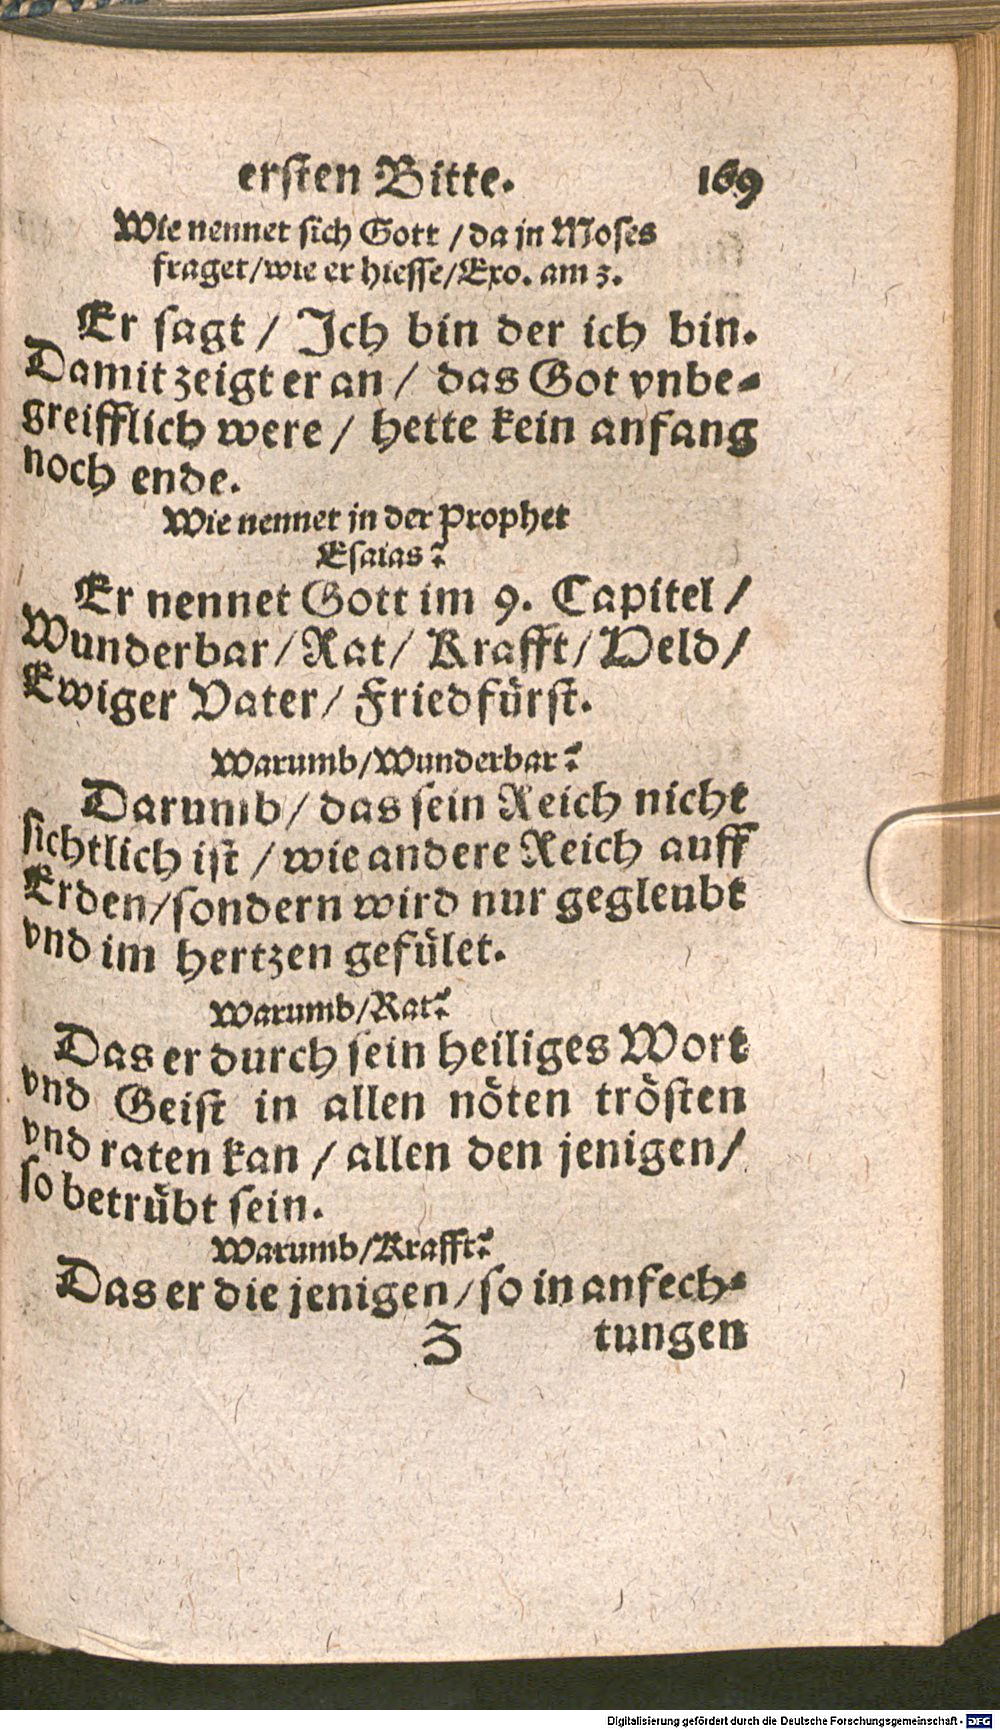 ersten Bitte. 169
Wie nennet sich Gott / da jn Moses
fraget/wie er hiesse/Exo. am 3.
Er sagt / Ich bin der ich bin.
Damit zeigt er an / das Got vnbe-
greifflich were / hette kein anfang
noch ende.
Wie nennet jn der Prophet
Esaias?
Er nennet Gott im 9. Capitel /
Wunderbar / Rat / Krafft / Veld /
Ewiger Vater / Friedfürst.
Warumb/Wunderbar?
Darumb / das sein Reich nicht
sichtlich ist / wie andere Reich auff
Erden/sondern wird nur gegleubt
vnd im hertzen gefület.
Warumb/Rat?
Das er durch sein heiliges Wort
vnd Geist in allen nöten trösten
vnd raten kan / allen den jenigen /
so betrübt sein.
Warumb/Krafft?
Das er die jenigen / so in anfech-
Z tungen
Digitalisierung gefördert durch die Deutsche Forschungsgemeinschaft - DFG